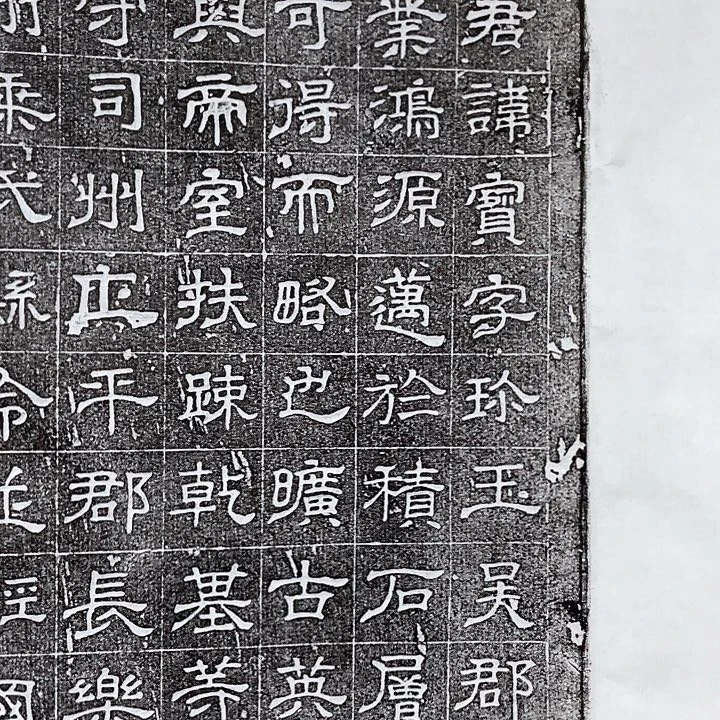 君諱寶字珍玉吳郡
業鴻源邁於積石層
可得而略也曠古英
與帝室扶踈乾基等
守司州干郡長樂
乘氏縣令並經國